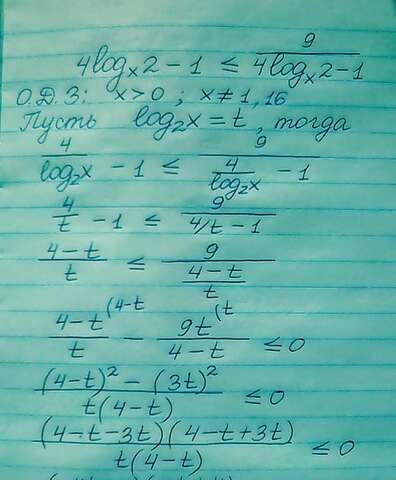 4log_x 2 - 1 ≤ 9/(4log_x 2 - 1)
О.Д.З: x>0 ; x≠1, 16
Пусть log₂x = t, тогда
4/(log₂x) - 1 ≤ 9/(4/(log₂x) - 1)
4/t - 1 ≤ 9/(4/t - 1)
(4-t)/t ≤ 9/((4-t)/t)
(4-t)/t ⁽⁴⁻ᵗ - 9t/(4-t) ⁽ᵗ ≤ 0
((4-t)² - (3t)²)/(t(4-t)) ≤ 0
((4-t-3t)(4-t+3t))/(t(4-t)) ≤ 0